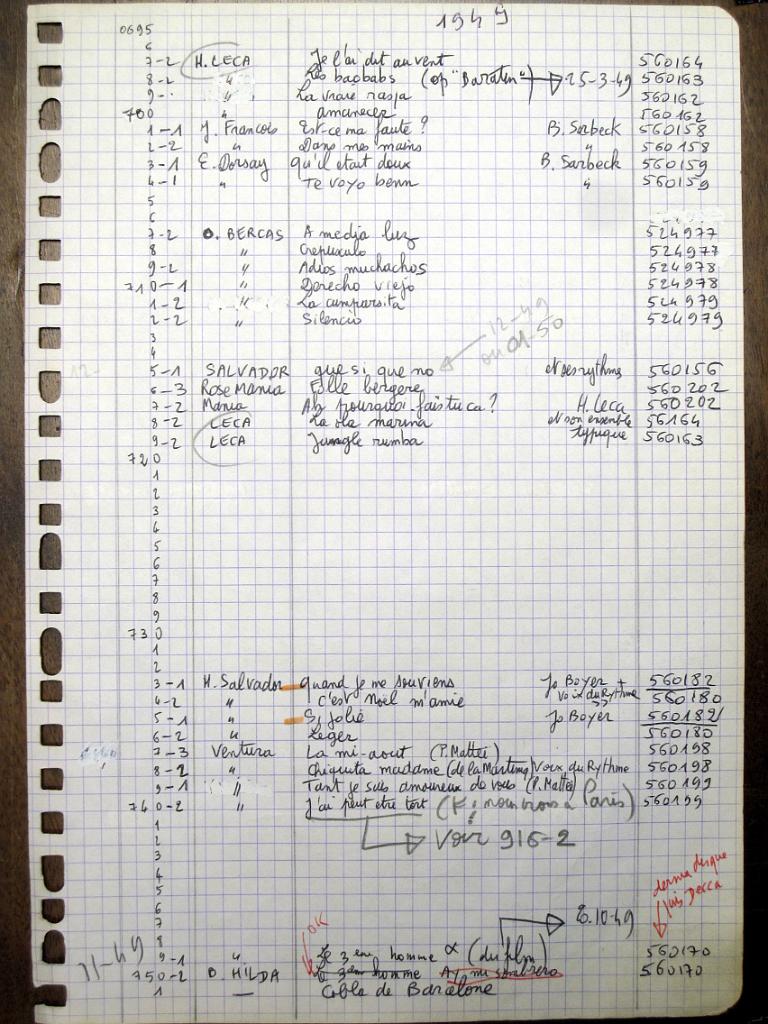 1949
0695
6
7-2 H. LECA Je l'ai dit au vent 560164
8-2 " Les baobabs (op "Baratin") 25-3-49 560163
9-. " La vraie raspa 560162
700 " amanecer 560162
1-1 J. François Est-ce ma faute ? B. Sarbeck 560158
2-2 " Dans mes mains " 560158
3-1 E. Dorsay qu'il était doux B. Sarbeck 560159
4-1 " Te voyo benn " 560159
5
6
7-2 O. BERCAS A media luz 524977
8 " Crepusculo 524977
9-2 " Adios muchachos 524978
710-1 " Derecho viejo 524978
1-2 " La cumparsita 524979
2-2 " Silencio 524979
3 12-49
4 ou 01-50
5-1 SALVADOR que si que no et ses rythms 560156
6-3 Rose Mania Folle bergere 560202
7-2 Mania Ah pourquoi fais tu ca ? H. Leca 560202
8-2 LECA La ola marina et son ensemble 56164
9-2 LECA Jungle rumba typique 560163
720
1
2
3
4
5
6
7
8
9
730
1
2
3-1 H. Salvador quand je me souviens Jo Boyer + 560182
4-2 " c'est Noël m'amie Voix du Rythme 560180
5-1 " Si jolie Jo Boyer 560182
6-2 " Leger 560180
7-3 Ventura La mi-aout (P. Mattei) 560198
8-2 " Chiquita madame (de la Martinique) Voix du Rythme 560198
9-1 " Tant je suis amoureux de vous (P. Mattei) 560199
740-2 " J'ai peut etre tort (K; nous irons à Paris) 560199
1
2 Voir 916-2
3
4
5 dernier disque
6 puis Decca
7 OK 8.10-49
8
11-49
9-1 " Le 3eme homme (du film) 560170
750-2 B. HILDA Le 3eme homme Ay mi sombrero 560170
1 — Cobla de Barcelone